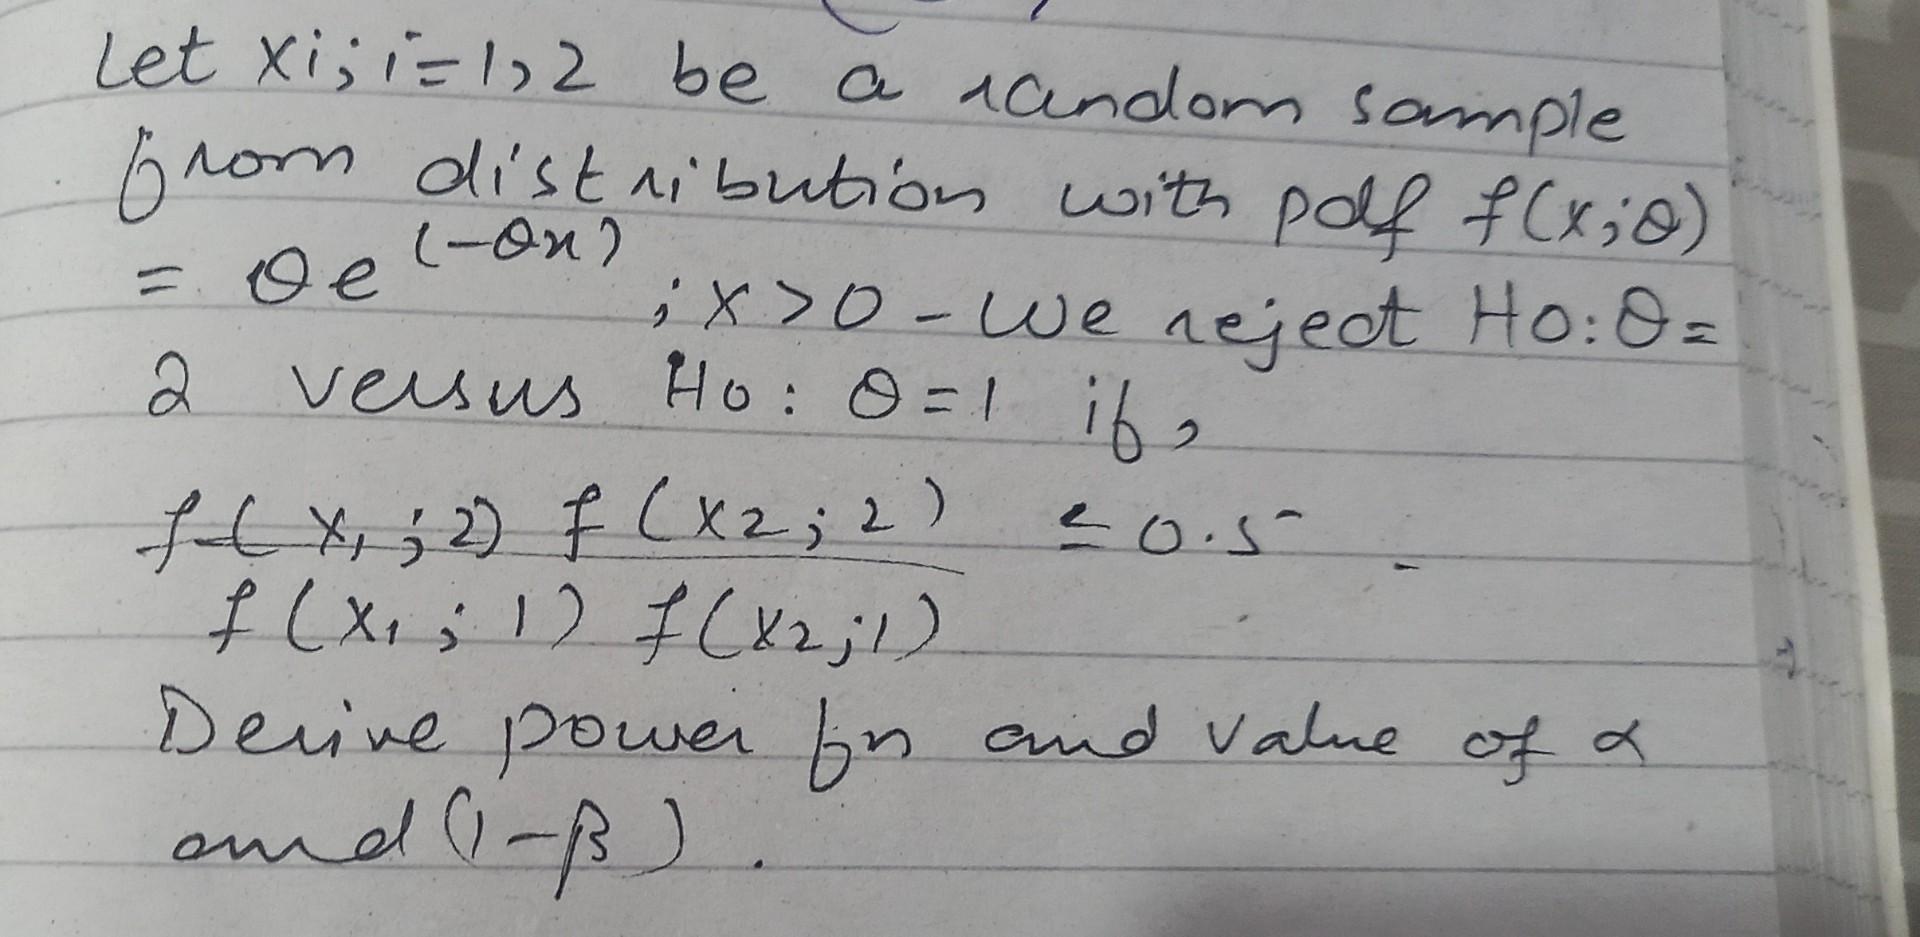 Let Xi; i=1,2 be a random sample
from distribution with pdf f(x;θ)
= θe^(-θx) ; x>0 - We reject H0: θ=
2 versus H0: θ=1 if,
f(x₁;2) f(x2;2) ≤ 0.5.
f(x₁;1) f(x2;1)
Derive power fn and value of α
and (1-β).